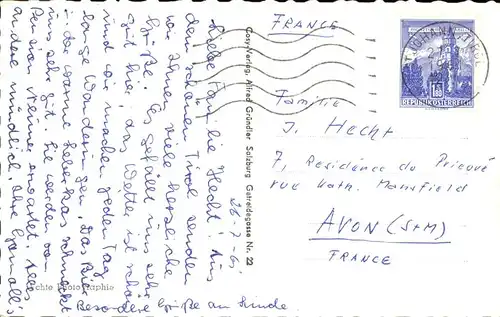 FRANCE
ST. JOHANN IN TIROL
1.80
REPUBLIK ÖSTERREICH
Familie
J. Hecht
7, Résidence du Prieuré
rue Kath. Mansfield
AVON (S+M)
FRANCE
Cosy-Verlag, Alfred Gründler Salzburg Getreidegasse Nr. 22
Liebe Familie Hecht! Aus
dem schönen Tirol senden
wir Ihnen viele herzliche
Grüße. Es gefällt uns sehr
gut hier, das Wetter ist schön
und wir machen jeden Tag
lange Wanderungen. Das Bier
u. der warme Leberkas schmeckt
uns sehr gut. Sie werden von
Pension erwartet. Alles
mündlich Ihre
Besondere Grüße an Linde.
Echte Photographie